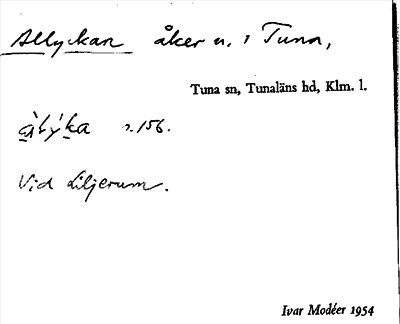 Allyckan åker n. i Tuna,
Tuna sn, Tunaläns hd, Klm. l.
s. 156.
Vid Liljerum.
Ivar Modéer 1954